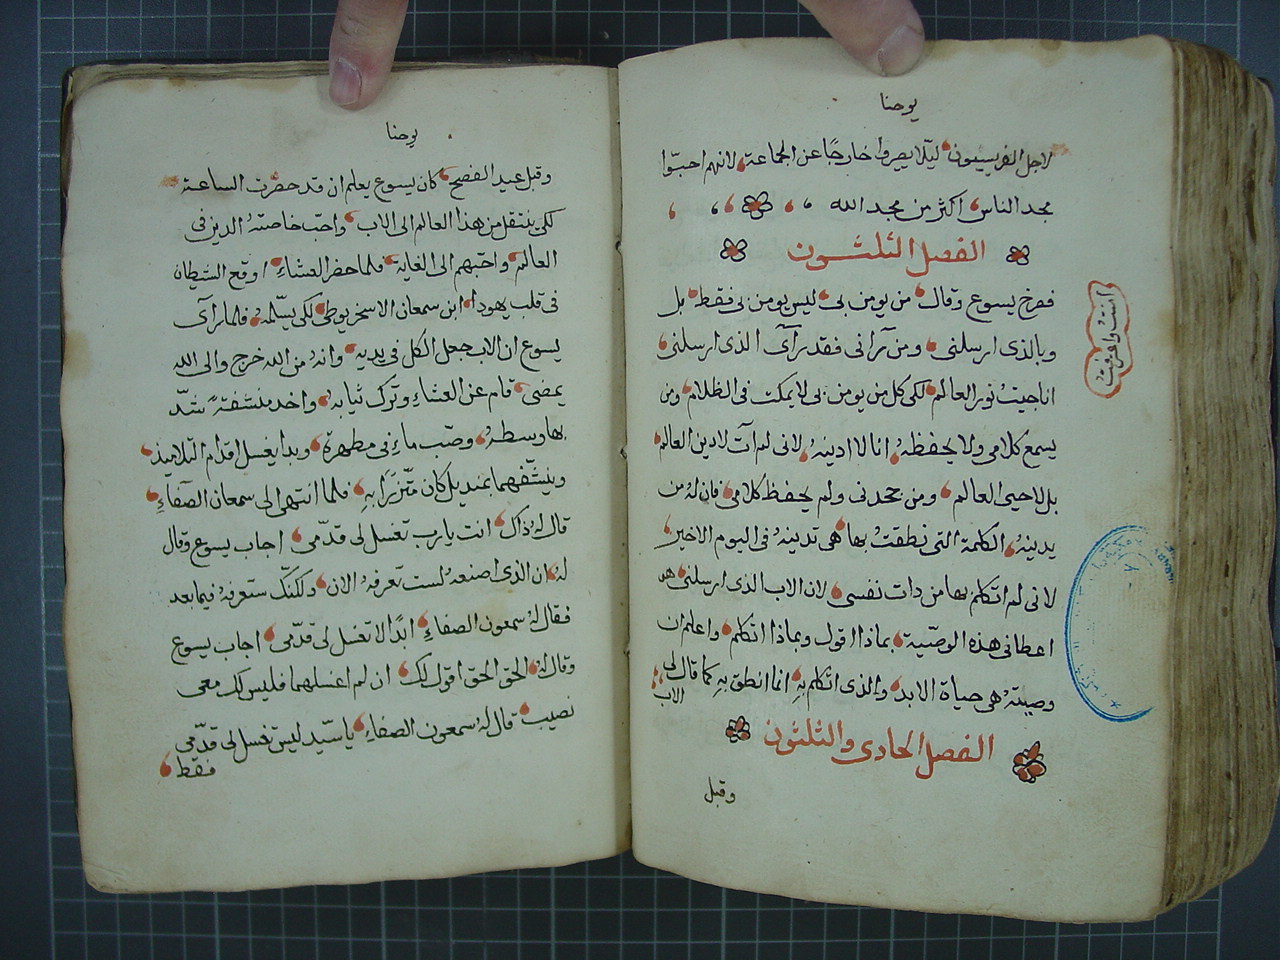 يوحنا
لاجل الفريسيون ليّلا يصيروا خارجًا عن الجماعة لانهم احبّوا
مجد الناس اكثر من مجد الله
الفصل الثلثون
فصرخ يسوع وقال من يومن بى ليس يومن بى فقط بل
وبالذى ارسلنى ومن رآنى فقد رآى الذى ارسلنى
انا جيتُ نور العالم لكى كل من يومن بى لا يمكت فى الظلام ومن
يسمع كلامى ولا يحفظهُ انا لا ادينهُ لانى لم آت لادين العالم
بل لاحيى العالم ومن جحدنى ولم يحفظ كلامى فان لهُ من
يدينهُ الكلمة التى نطقتُ بها هى تدينهُ فى اليوم الاخير
لانى لم اتكلم بها من دات نفسى لان الاب الدى ارسلنى هو
اعطانى هده الوصيّة بماذا اقول وبماذا اتكلم واعلم ان
وصيتهُ هى حياة الابد والذى اتكلم بهِ انما انطق بهِ كما قال لى
الاب
الفصل الحادى والثلثون
وقبل
يوحنا
وقبل عيد الفصح كان يسوع يعلم ان قد حضرت الساعة
لكى ينتقل من هذا العالم الى الاب واحبّ خاصتهُ الدين فى
العالم واحبّهم الى الغاية فلما حضر العشاء اوقع الشيطان
فى قلب يهودا ابن سمعان الاسخريوطى لكى يسلّمهُ فلما رآى
يسوع ان الاب جعل الكل فى يديه وانهُ من الله خرج والى الله
يمضى قام عن العشاءِ وترك ثيابهُ واخد منشفةً شدّ
بها وسطهُ وصبّ ماءِ فى مطهرة وبدا يغسل اقدام التلاميذ
وينشّفهما بمنديل كان متّزرًا بهِ فلما انتهى الى سمعان الصفاءِ
قال لهُ ذاك انت يارب تغسل لى قدّمى اجاب يسوع وقال
لهُ ان الذى اصنعهُ لست تعرفهُ الان ولكنّك ستعرفهُ فيما بعد
فقال لهُ سمعون الصفاءِ ابدًا لا تغسل لى قدّمى اجاب يسوع
وقال لهُ الحق الحق اقول لك ان لم اغسلهما فليس لك معى
نصيب قال لهُ سمعون الصفاءِ ياسيّد ليس تغسل لى قدّمى
فقط